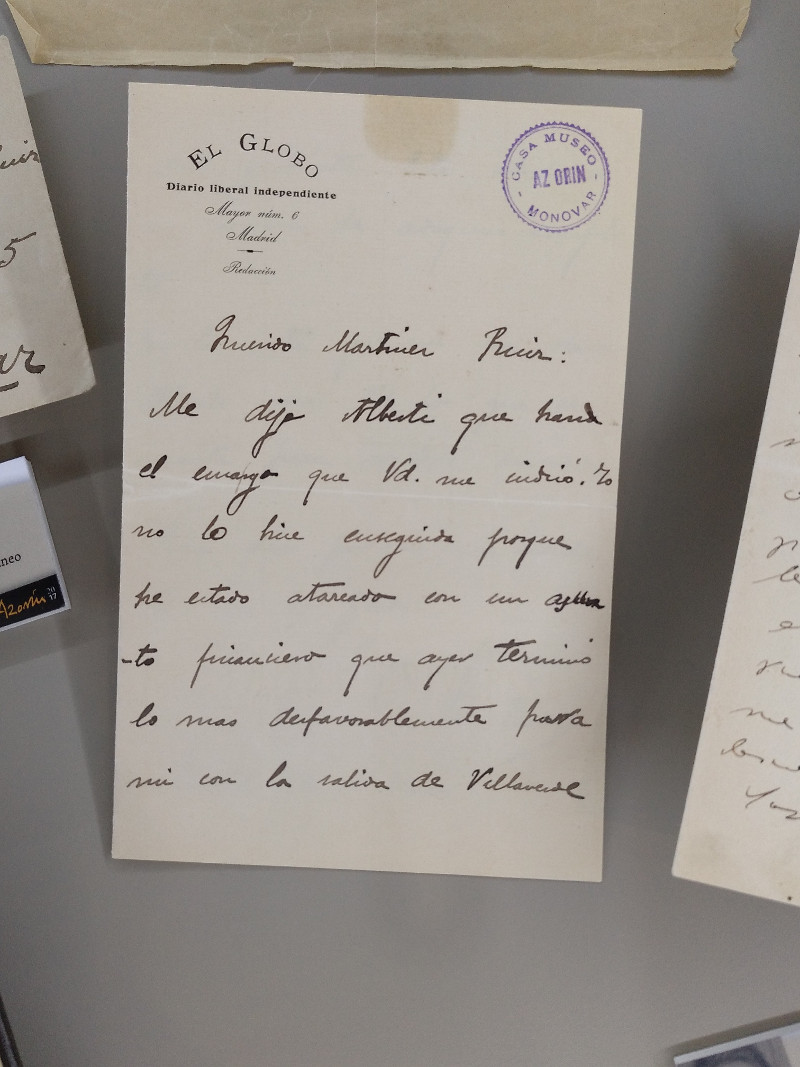 EL GLOBO
Diario liberal independiente
Mayor núm. 6
Madrid
Redacción
CASA MUSEO
AZORIN
MONOVAR
Querido Martinez Ruiz:
Me dijo Alberti que hará
el encargo que Vd. me indicó. Yo
no lo hice enseguida porque
he estado atareado con un asun
-to financiero que ayer terminó
lo mas desfavorablemente para
mi con la salida de Villaverde
Ruiz
5
neo
Azorín
20
17
me